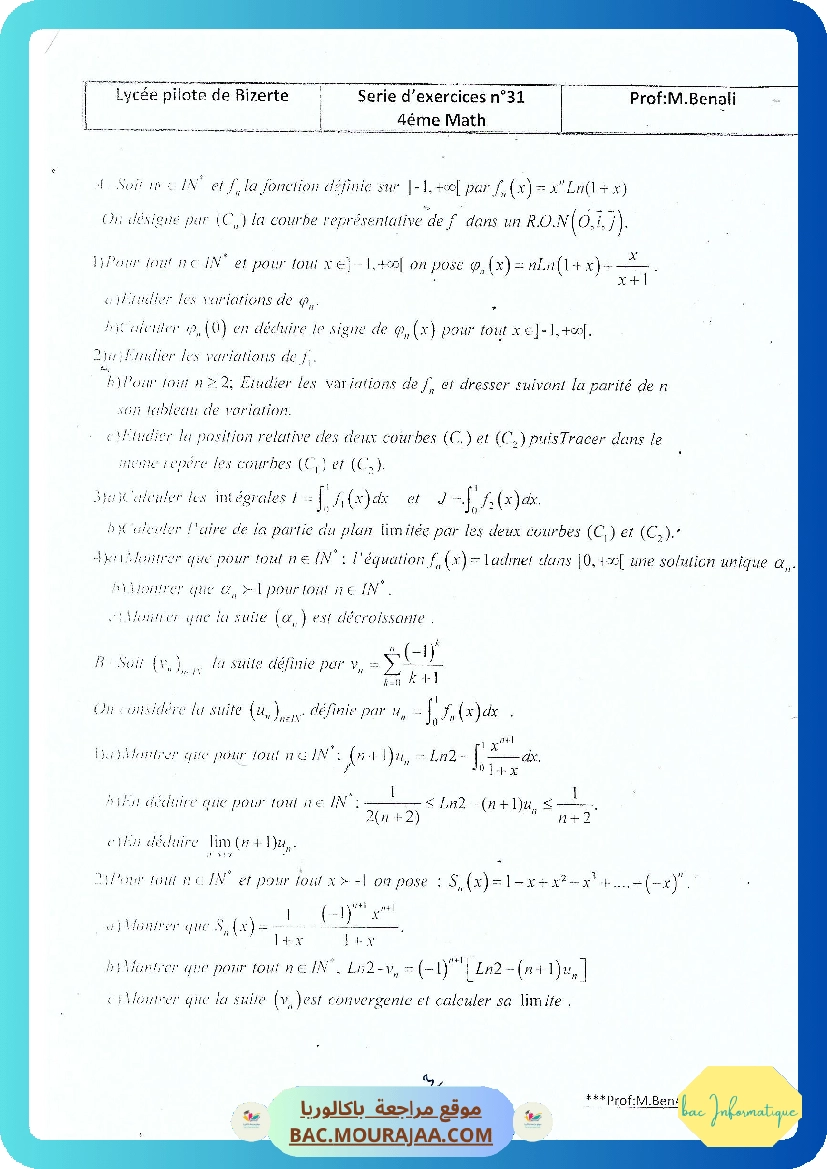 Lycée pilote de Bizerte
Serie d'exercices n°31
4éme Math
Prof:M.Benali
A- Soit n ∈ IN* et fₙ la fonction définie sur ]-1,+∞[ par fₙ(x) = xⁿLn(1+x)
On désigne par (Cₙ) la courbe représentative de f dans un R.O.N(O,i,j).
1)Pour tout n ∈ IN* et pour tout x ∈]-1,+∞[ on pose φₙ(x) = nLn(1+x)+ x/(x+1).
a)Etudier les variations de φₙ.
b)Calculer φₙ(0) en déduire le signe de φₙ(x) pour tout x ∈]-1,+∞[.
2)a)Etudier les variations de f₁.
b)Pour tout n ≥ 2; Etudier les variations de fₙ et dresser suivant la parité de n
son tableau de variation.
c)Etudier la position relative des deux courbes (C₁) et (C₂) puisTracer dans le
meme repére les courbes (C₁) et (C₂).
3)a)Calculer les intégrales I = ∫₀¹ f₁(x)dx et J = ∫₀¹ f₂(x)dx.
b)Calculer l'aire de la partie du plan limitée par les deux courbes (C₁) et (C₂).
4)a)Montrer que pour tout n ∈ IN* ; l'équation fₙ(x) = 1admet dans ]0,+∞[ une solution unique αₙ.
b)Montrer que αₙ > 1 pour tout n ∈ IN*.
c)Montrer que la suite (αₙ) est décroissante .
B- Soit (vₙ)n∈IN la suite définie par vₙ = ∑ₖ₌₀ⁿ (-1)ᵏ/(k+1)
On considére la suite (uₙ)n∈IN* définie par uₙ = ∫₀¹ fₙ(x)dx .
1)a)Montrer que pour tout n ∈ IN* ; (n+1)uₙ = Ln2 - ∫₀¹ xⁿ⁺¹/(1+x) dx.
b)En déduire que pour tout n ∈ IN* ; 1/(2(n+2)) ≤ Ln2 - (n+1)uₙ ≤ 1/(n+2).
c)En déduire lim (n+1)uₙ.
2)Pour tout n ∈ IN* et pour tout x > -1 on pose : Sₙ(x) = 1-x+x²-x³+....+(-x)ⁿ.
a)Montrer que Sₙ(x) = 1/(1+x) - (-1)ⁿ⁺¹xⁿ⁺¹/(1+x).
b)Montrer que pour tout n ∈ IN*, Ln2-vₙ = (-1)ⁿ⁺¹[Ln2-(n+1)uₙ]
c)Montrer que la suite (vₙ)est convergente et calculer sa limite .
***Prof:M.Ben
bac Informatique
موقع مراجعة باكالوريا
BAC.MOURAJAA.COM